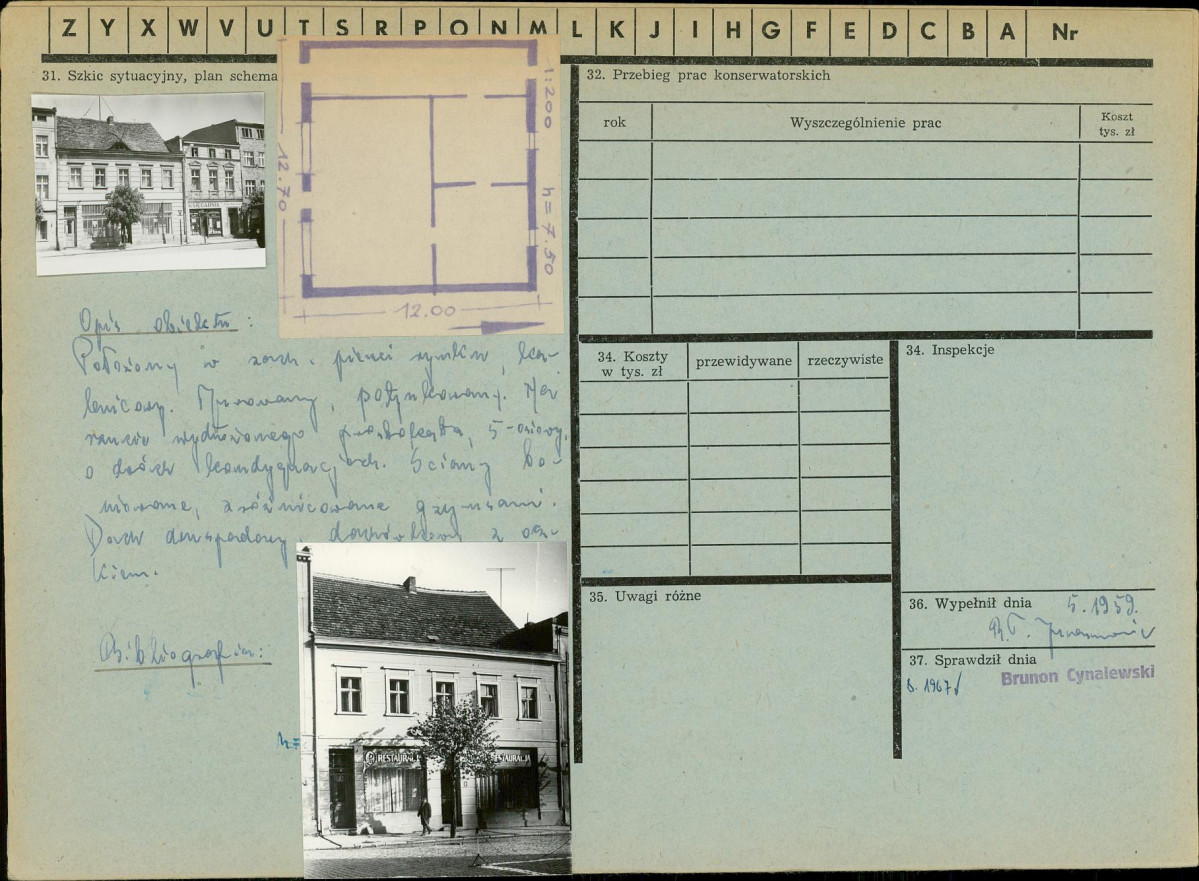 Z Y X W V U T S R P O N M L K J I H G F E D C B A Nr
31. Szkic sytuacyjny, plan schema
1:200 h=7.50
12.70
12.00
Opis obiektu:
Położony w zach. pierzei rynku, ka-
lenicowy. Murowany, potynkowany. Na
rzucie wydłużonego prostokąta, 5-osiowy,
o dwóch kondygnacjach. Ściany bo-
niowane, zróżnicowane gzymsami.
Dach dwuspadowy, dachówkowy z
kiem.
Bibliografia:
RESTAURACJ
ESTAURACJA
32. Przebieg prac konserwatorskich
rok
Wyszczególnienie prac
Koszt
tys. zł
34. Koszty
w tys. zł
przewidywane
rzeczywiste
34. Inspekcje
35. Uwagi różne
36. Wypełnił dnia 5.1959.
37. Sprawdził dnia
6. 1967
Brunon Cynalewski